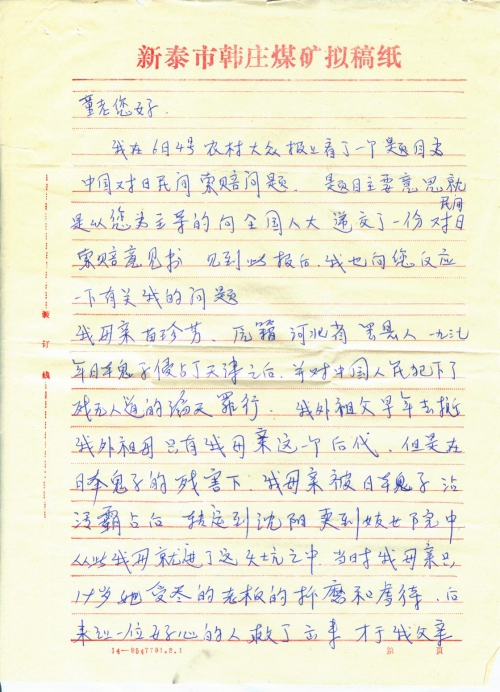 新泰市韩庄煤矿拟稿纸
董老您好.
我在6月4号农村大众报上看了一个题目为
中国对日民间索赔问题. 题目主要意思就
是从您为主导的向全国人大递交了一份对日民间
索赔意见书 见到此报后.我也向您反应
一下有关我的问题
我母亲苗珍芳. 原籍河北省 县人 一九三七
年日本鬼子侵占了天津之后.并对中国人民犯下了
残无人道的滔天罪行. 我外祖父早年去逝
我外祖母只有我母亲这一个后代. 但是在
日本鬼子的残害下.我母亲被日本鬼子沾
污霸占后 转卖到沈阳 卖到妓女院中
从此我母就进了这火坑之中 当时我母亲只
17岁她受尽的老板的折磨和虐待.后
来 一位好心的人救了出来 才于我父亲
装订线
14—8547791.2.1
第 页